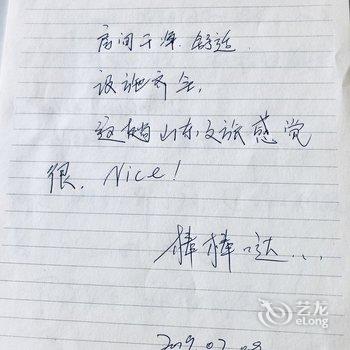 房间干净.舒适.
设施齐全,
这趟山东文旅感觉
很. Nice!
棒棒哒...
2019.07.08
艺龙
eLong